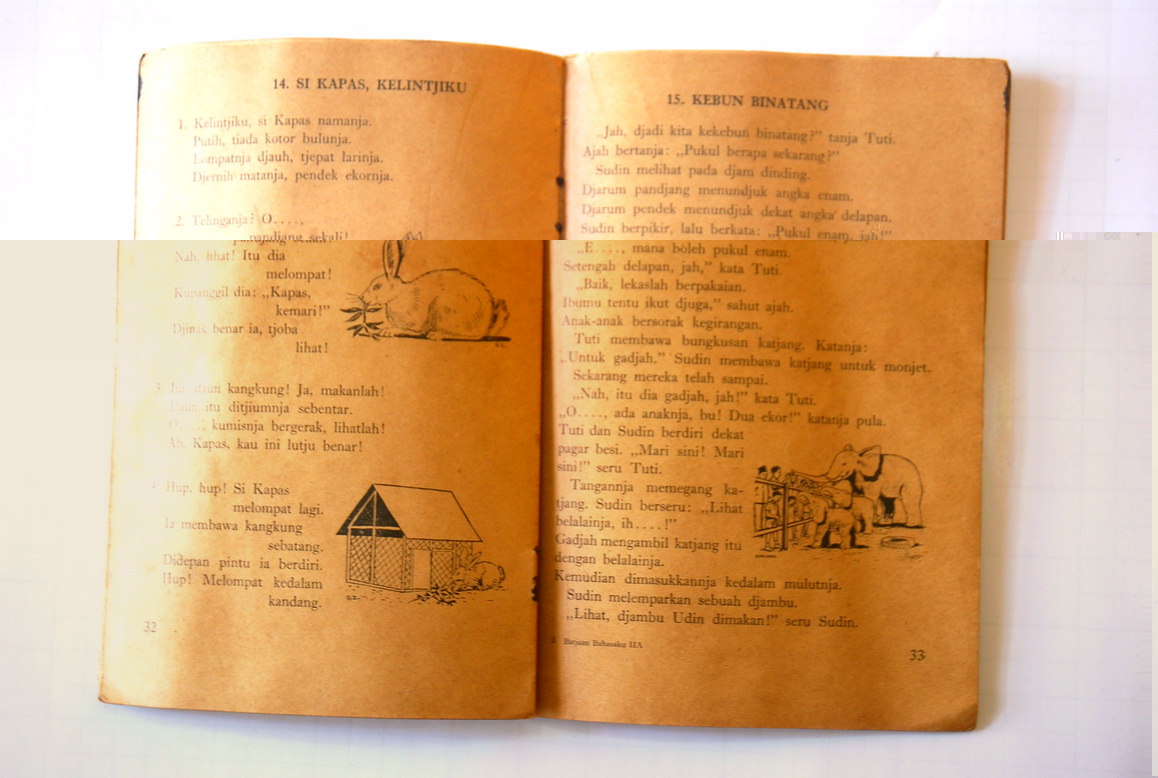 14. SI KAPAS, KELINTJIKU
1. Kelintjiku, si Kapas namanja.
Putih, tiada kotor bulunja.
Lompatnja djauh, tjepat larinja.
Djernih matanja, pendek ekornja.
2. Telinganja? O....,
pandjang sekali!
Nah, lihat! Itu dia
melompat!
Kupanggil dia: „Kapas,
kemari!”
Djinak benar ia, tjoba
lihat!
3. daun kangkung! Ja, makanlah!
Daun itu ditjiumnja sebentar.
O...., kumisnja bergerak, lihatlah!
Ah, Kapas, kau ini lutju benar!
4. Hup, hup! Si Kapas
melompat lagi.
Ia membawa kangkung
sebatang.
Didepan pintu ia berdiri.
Hup! Melompat kedalam
kandang.
32
15. KEBUN BINATANG
„Jah, djadi kita kekebun binatang?” tanja Tuti.
Ajah bertanja: „Pukul berapa sekarang?”
Sudin melihat pada djam dinding.
Djarum pandjang menundjuk angka enam.
Djarum pendek menundjuk dekat angka delapan.
Sudin berpikir, lalu berkata: „Pukul enam, jah!”
„E...., mana boleh pukul enam.
Setengah delapan, jah,” kata Tuti.
„Baik, lekaslah berpakaian.
Ibumu tentu ikut djuga,” sahut ajah.
Anak-anak bersorak kegirangan.
Tuti membawa bungkusan katjang. Katanja:
„Untuk gadjah.” Sudin membawa katjang untuk monjet.
Sekarang mereka telah sampai.
„Nah, itu dia gadjah, jah!” kata Tuti.
„O...., ada anaknja, bu! Dua ekor!” katanja pula.
Tuti dan Sudin berdiri dekat
pagar besi. „Mari sini! Mari
sini!” seru Tuti.
Tangannja memegang ka-
tjang. Sudin berseru: „Lihat
belalainja, ih....!”
Gadjah mengambil katjang itu
dengan belalainja.
Kemudian dimasukkannja kedalam mulutnja.
Sudin melemparkan sebuah djambu.
„Lihat, djambu Udin dimakan!” seru Sudin.
Batjaan Bahasaku IIA
33